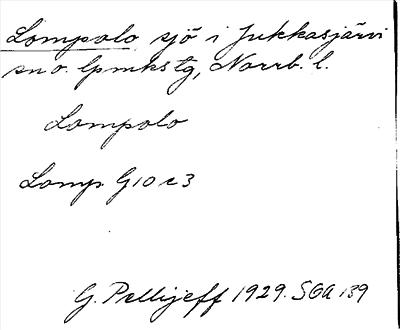 Lompolo sjö i Jukkasjärvi
sn o. lpmkstg, Norrb. l.
Lompolo
Lomp G10 c3
G. Pellijeff 1929. SOA 139